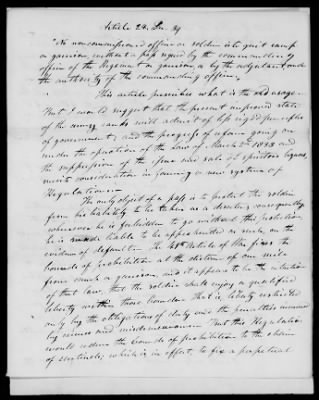 Article 24. Sec. 49
"No non commissioned officer or soldier is to quit camp
or garrison without a pass signed by the commanding
officer of the Regiment or garrison or by the adjutant, under
the authority of the commanding officer.
This article prescribes what is the old usage.
But I would suggest that the present improved state
of the army will admit of less rigid principles
of government, and the progress of reform going on
under the operation of the Law of March 2nd 1833 and
the suppression of the issue and sale of spiritous liquors,
merits consideration in framing a new system of
Regulations.
The only object of a pass is to protect the soldier
from his liability to be taken as a deserter, consequently
whenever he is forbidden to go without this protection
he is liable to be apprehended as such, on the
evidence of default. The 41st Article of War fixes the
bounds of prohibition at the distance of one mile
from camp or garrison, and it appears to be the intention
of that law, that the soldier shall enjoy a qualified
liberty within those bounds. That is, liberty restricted
only by the obligations of duty and the penalties incurred
by crimes and misdemeanors. But this Regulation
would reduce the bounds of prohibition to the chain
of sentinels, which is in effect, to fix a perpetual